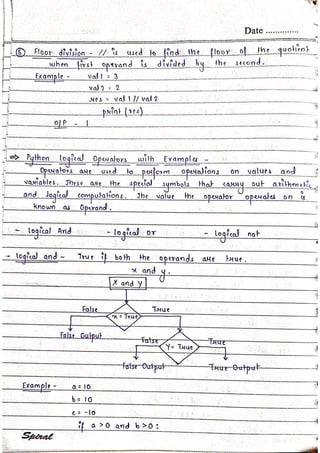 Date ..............
⑥ Floor division - // is used to find the floor of the quotient
when first operand is divided by the second.
Example - val 1 = 3
val 2 = 2
res = val 1 // val 2
print (res)
O/P - 1
⇒ Python logical Operators with Examples -
Operators are used to perform operations on values and
variables. These are the special symbols that carry out arithmetic
and logical computations. The value the operator operates on is
known as Operand.
- Logical And - Logical or - Logical not
- Logical and - True if both the operands are true.
x and y.
x and y
False True
x = True
False Output False True
Y = True
False Output True Output
Example - a = 10
b = 10
c = -10
if a > 0 and b > 0 :
Spiral